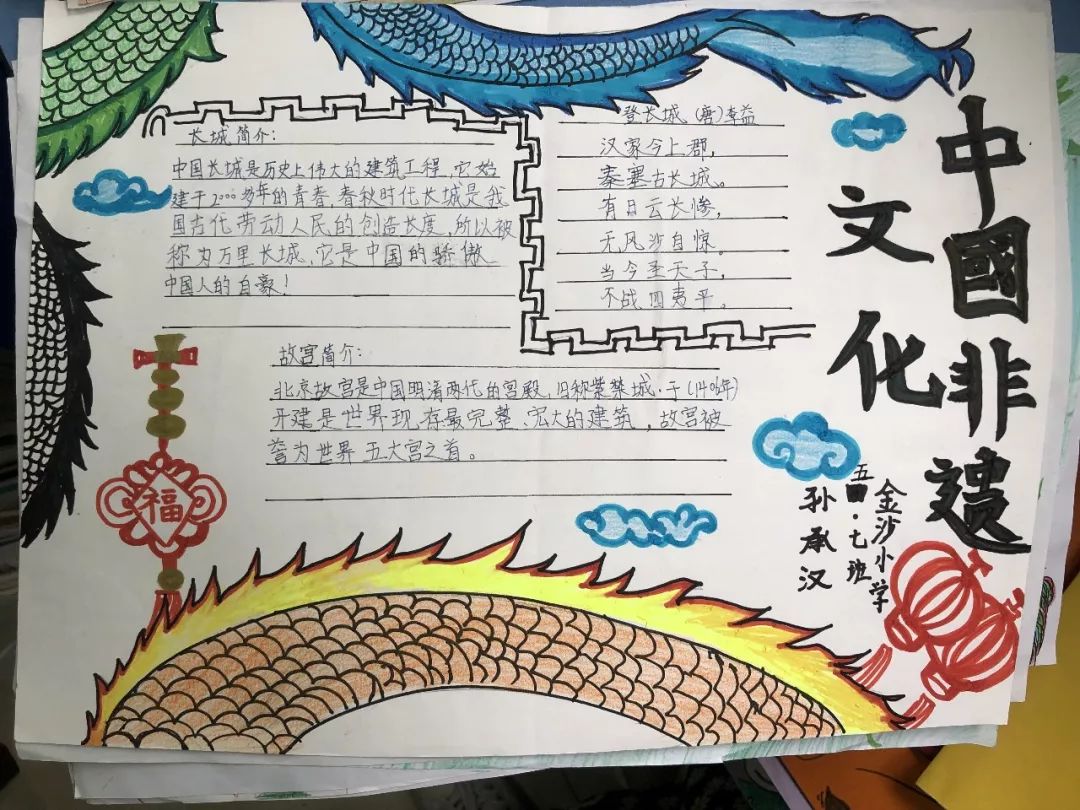 中國非遗
文化
金沙小学
五·七班
孙承汉
长城简介:
中国长城是历史上伟大的建筑工程,它始
建于2000多年的青春,春秋时代长城是我
国古代劳动人民的创造长度,所以被
称为万里长城,它是中国的骄傲
中国人的自豪!
登长城(唐)李益
汉家今上郡,
秦塞古长城。
有日云长惨,
无风沙自惊。
当今圣天子,
不战四夷平。
故宫简介:
北京故宫是中国明清两代的宫殿,旧称紫禁城·于(1406年)
开建是世界现存最完整、宏大的建筑,故宫被
誉为世界五大宫之首。
福